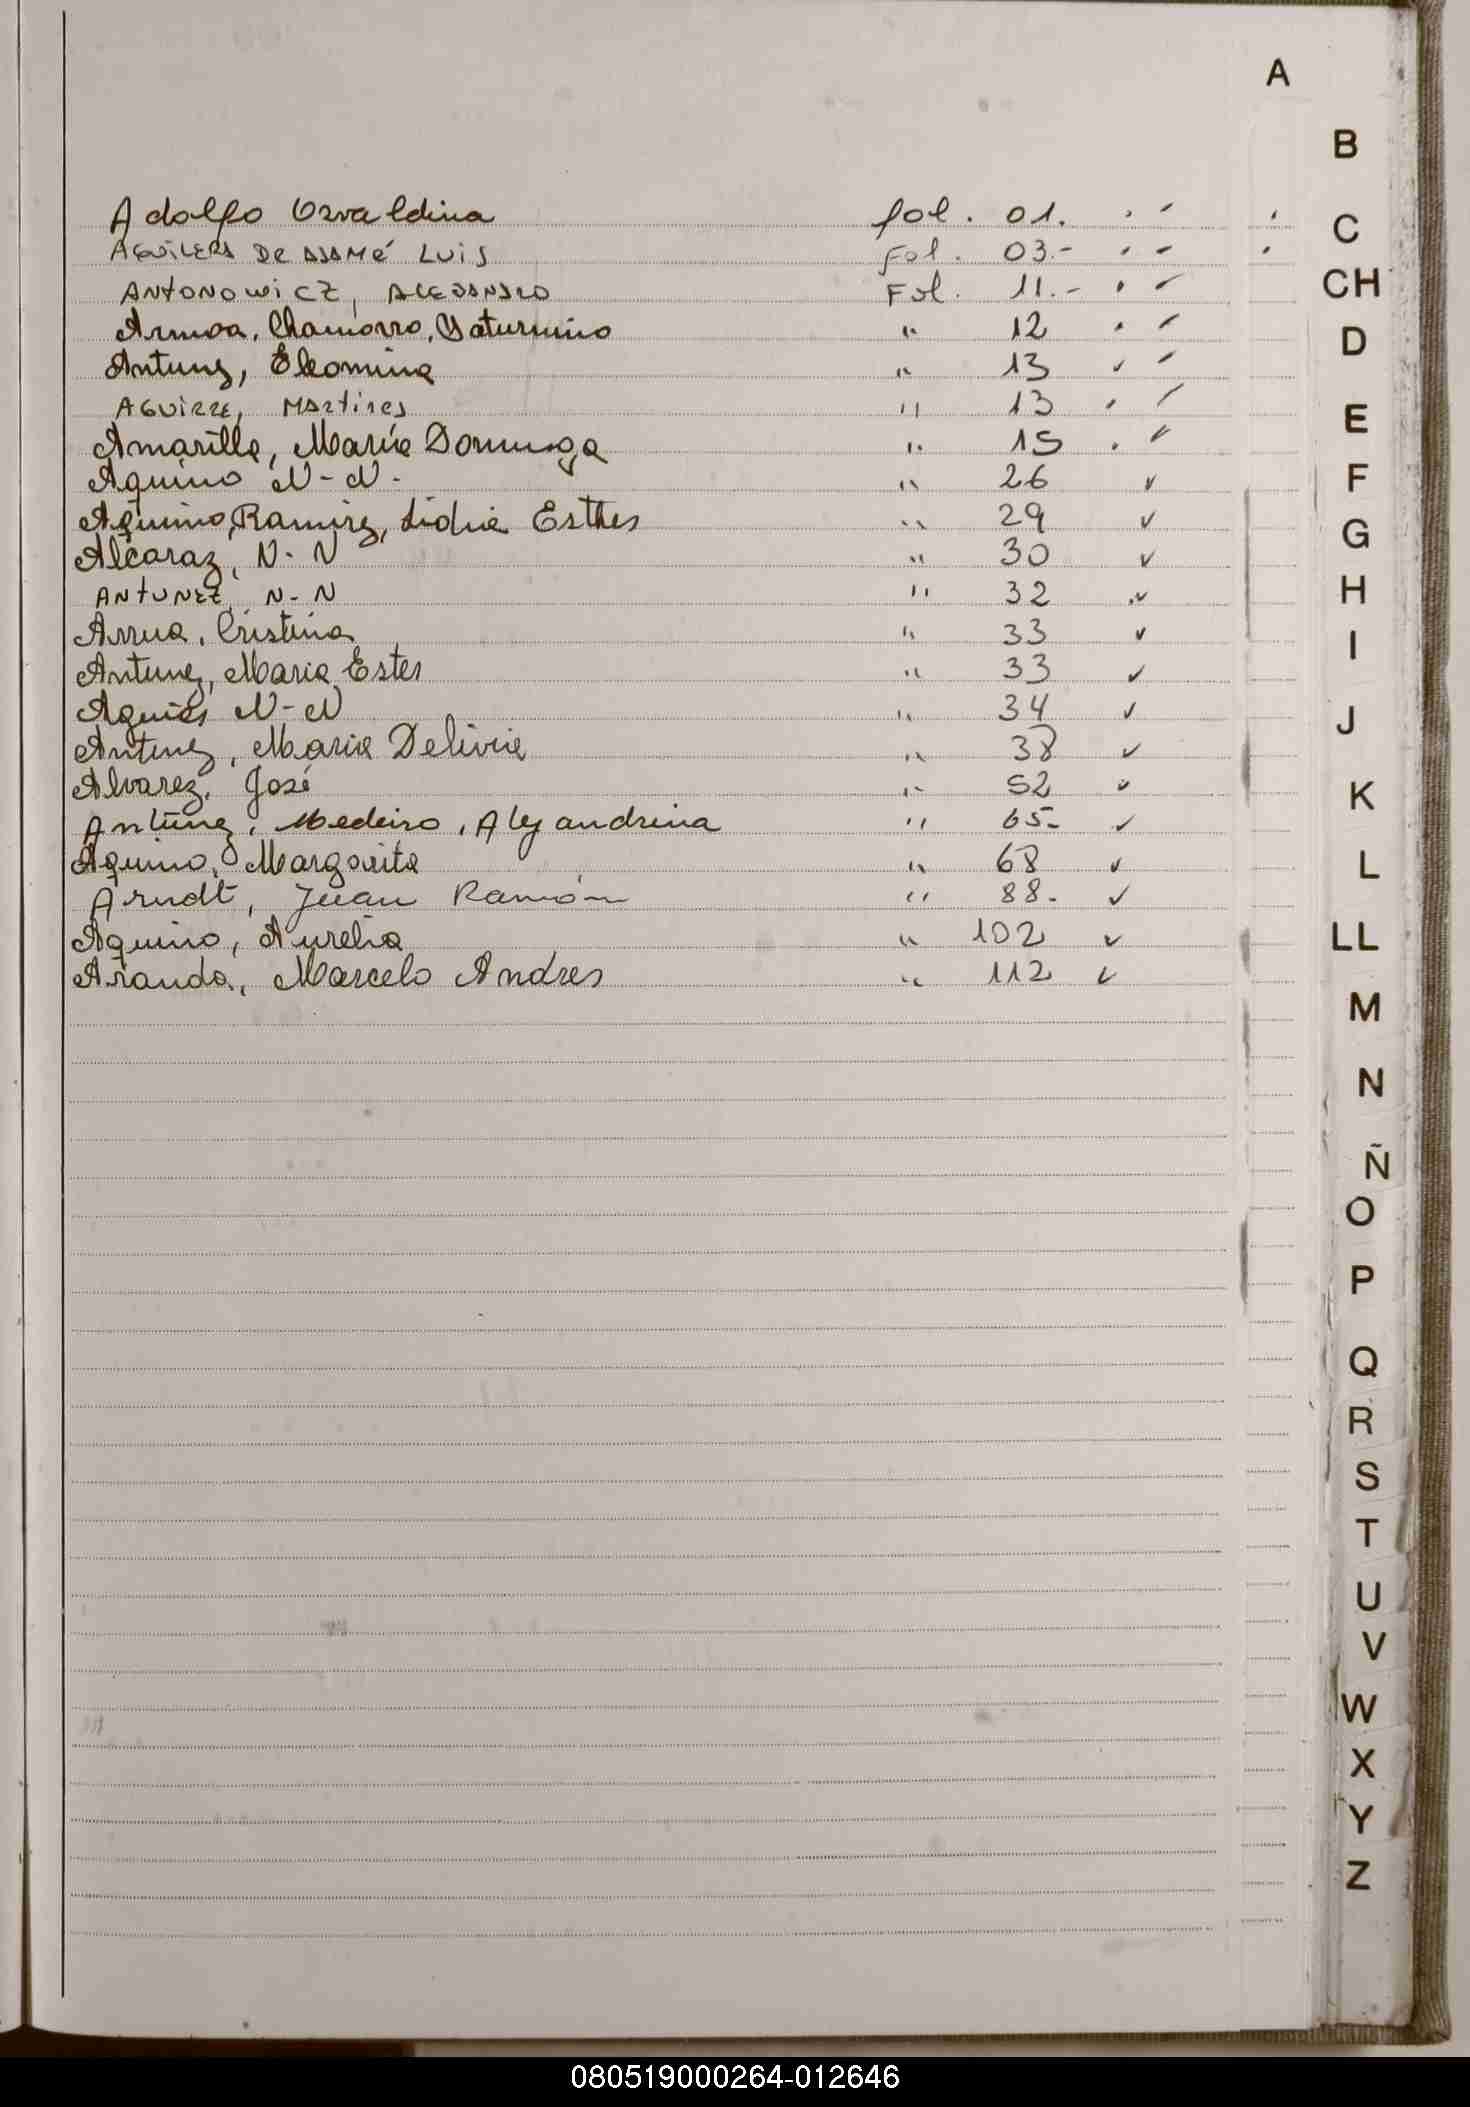 A
B
C
CH
D
E
F
G
H
I
J
K
L
LL
M
N
Ñ
O
P
Q
R
S
T
U
V
W
X
Y
Z
Adolfo Osvaldina fol. 01.
AGUILERA DE LUIS Fol. 03.-
ANTONOWICZ, ALEJANDRO Fol. 11.-
Armoa, Chamorro, Saturnino " 12
Antunez, Eleomina " 13
AGUIRRE, MARtires " 13
Amarilla, María Dominga " 15
Aquino N-N. " 26
Aquino, Ramirez, Lidia Esther " 29
Alcaraz, N-N " 30
ANtUNEZ, N-N " 32
Arrua, Cristina " 33
Antunez, Maria Ester " 33
N-N " 34
Antunez, Maria Delivia " 38
Alvarez, José " 52
Antunez, Medeiro, Alejandrina " 65-
Aquino, Margarita " 68
Arndt, Juan Ramón " 88-
Aquino, Aurelia " 102
Aranda, Marcelo Andres " 112
080519000264-012646